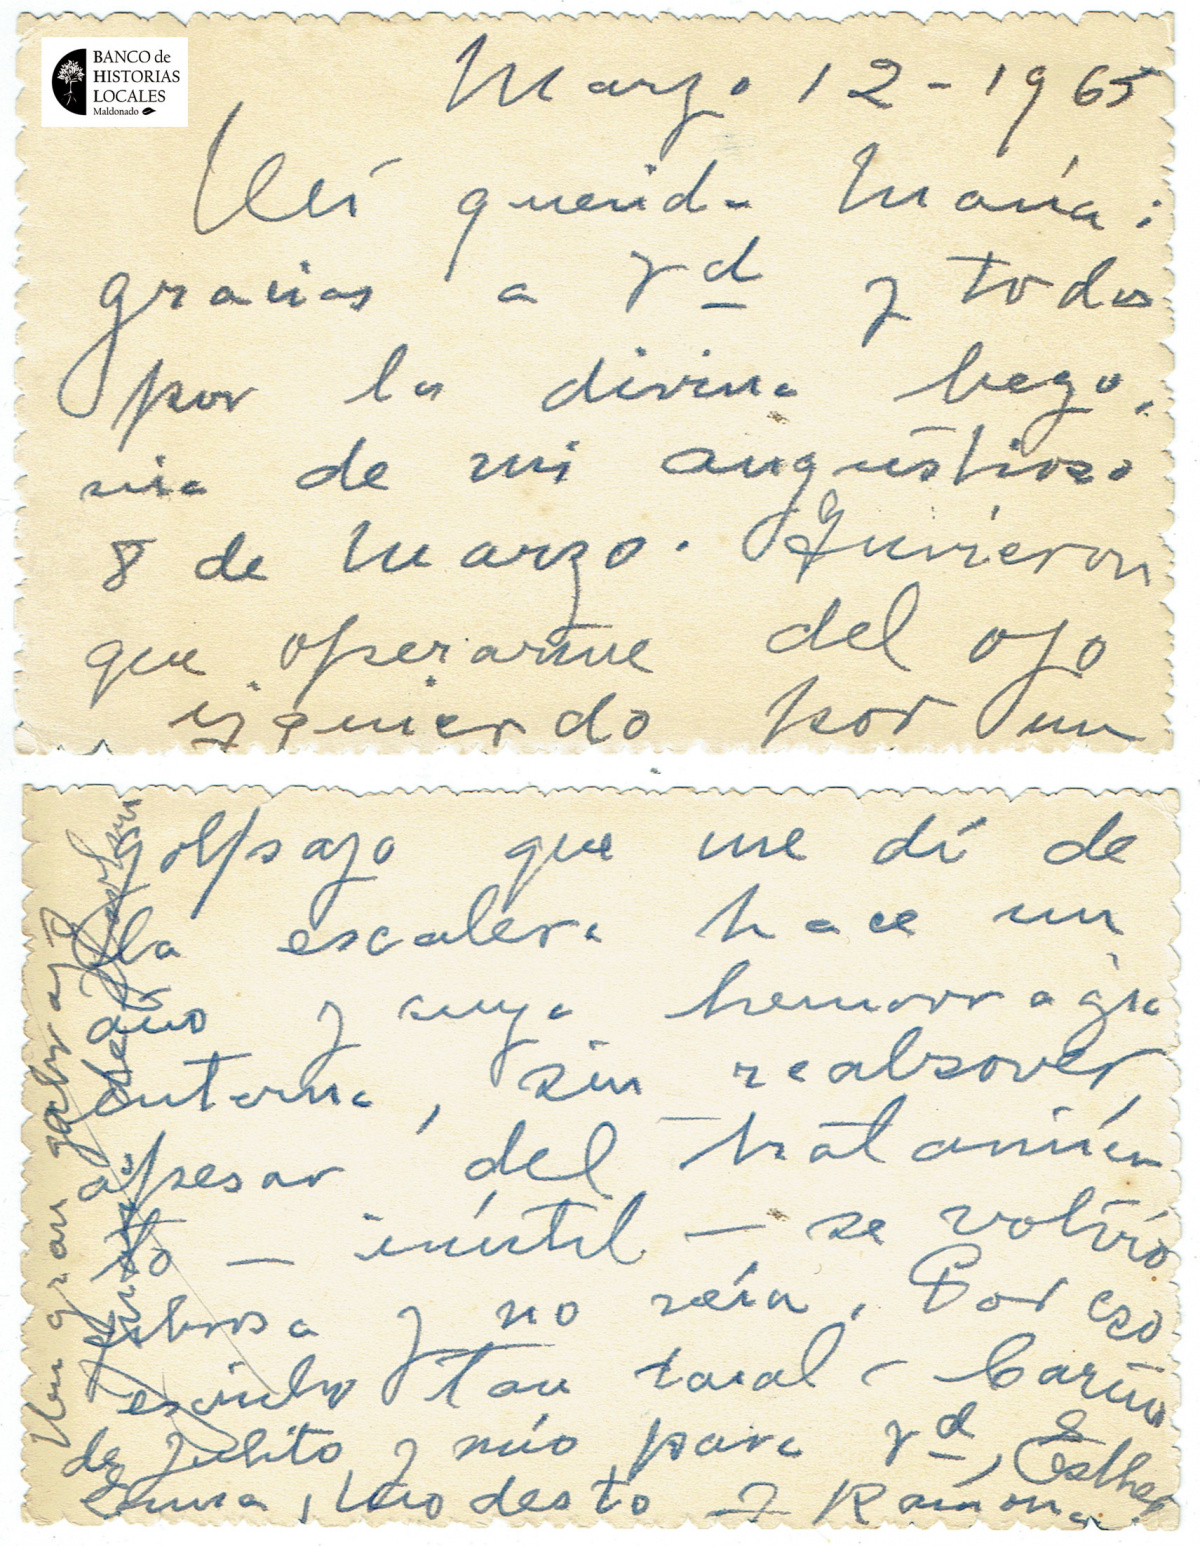 BANCO de
HISTORIAS
LOCALES
Maldonado
Marzo 12-1965
Mi querida María:
gracias a Vd y todos
por la divina bego,
nia de mi angustioso
8 de Marzo. Quisieron
que operarme del ojo
izquierdo por un
golpazo que me dí de
la escalera hace un
año y cuya hemorragia
interna, sin reabsover,
apesar del tratamien
to — inútil — se volvió
fibrosa y no veía. Por eso
escribo tan tan mal - Cariños
de Julito y mío para Vd, Esther
Emma, Modesto y Ramona.
Un gran abrazo
de